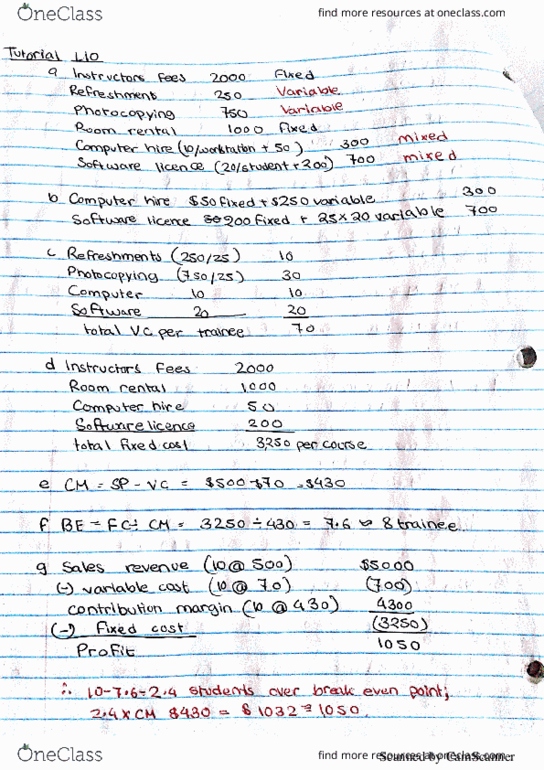 OneClass find more resources at oneclass.com
Tutorial L10
a Instructors Fees 2000 Fixed
Refreshment 250 Variable
Photocopying 750 Variable
Room rental 1000 fixed
Computer hire (10/workstation + 50) 300 mixed
Software licence (20/student + 200) 700 mixed
b Computer hire $50 fixed + $250 variable 300
Software licence 200 fixed + 25x20 variable 700
c Refreshments (250/25) 10
Photocopying (750/25) 30
Computer 10 10
Software 20 20
total V.C per trainee 70
d Instructors Fees 2000
Room rental 1000
Computer hire 50
Software licence 200
total fixed cost 3250 per course
e CM = SP - VC = $500-$70 = $430
f BE = FC ÷ CM = 3250 ÷ 430 = 7.6 8 trainee
g Sales revenue (10 @ 500) $5000
(-) variable cost (10 @ 70) (700)
contribution margin (10 @ 430) 4300
(-) Fixed cost (3250)
Profit 1050
∴ 10-7.6=2.4 students over break even point;
2.4 x CM $430 = $1032 ≈ 1050.
OneClass find more resources at oneclass.com
Scanned by CamScanner